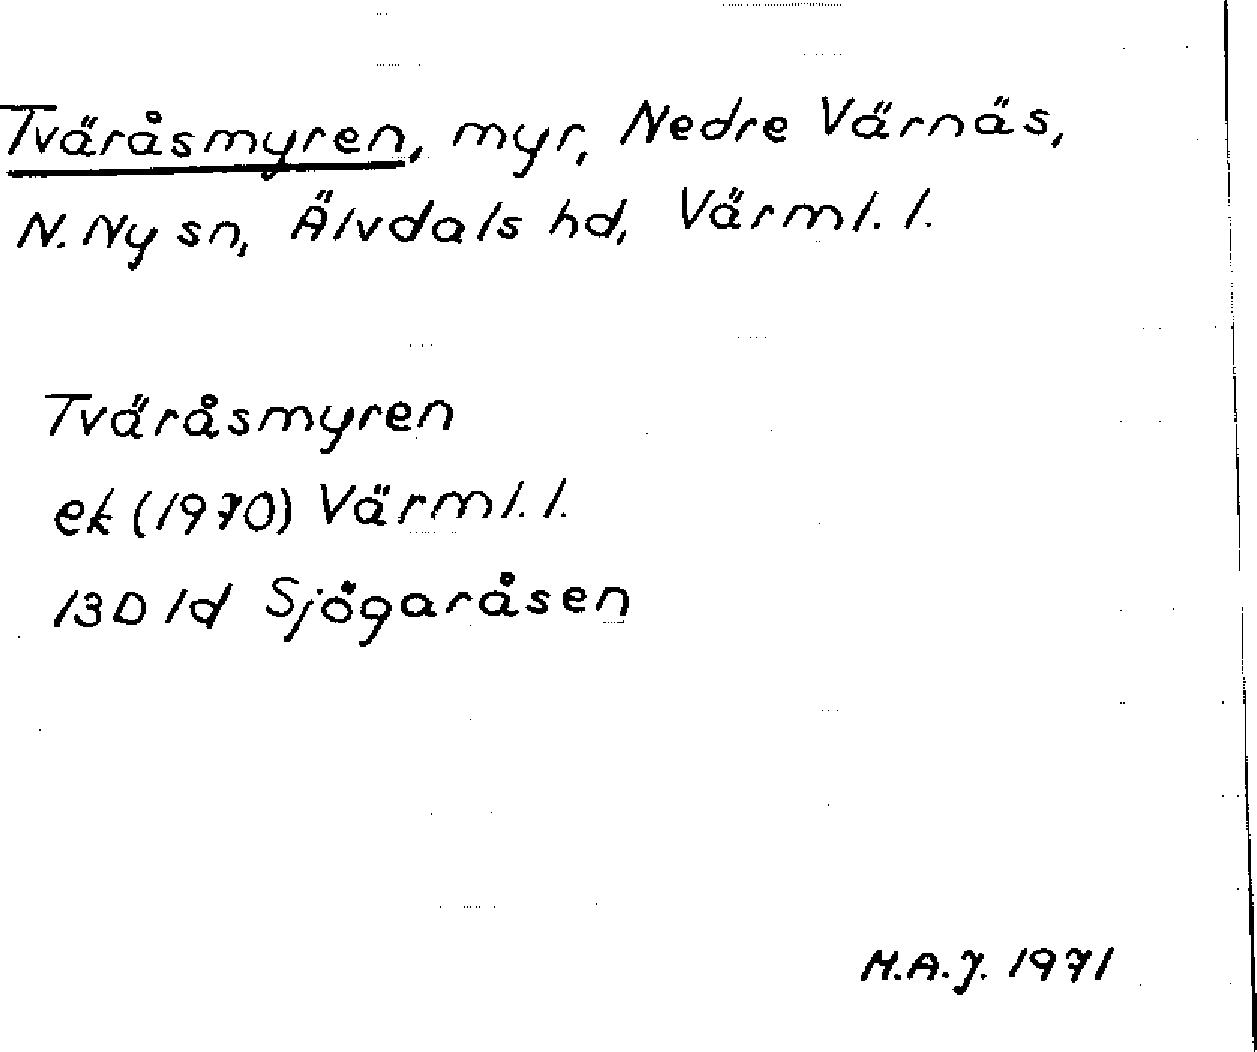 Tväråsmyren, myr, Nedre Värnäs,
N. Ny sn, Älvdals hd, Värml. l.
Tväråsmyren
ek (1970) Värml. l.
13D 1d Sjögaråsen
M.A.J. 1971